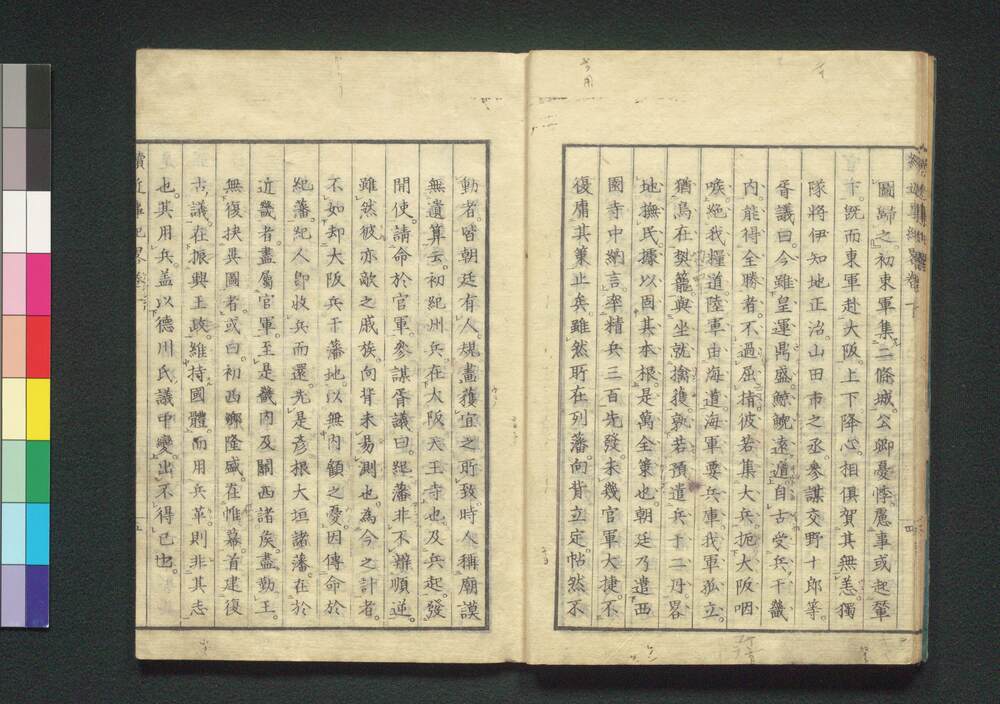 圖歸之。初東軍集二條城。公卿憂悸。慮事或起輦
下。既而東軍赴大阪。上下降心。相俱賀其無恙。獨
隊將伊知地正治。山田市之丞。參謀交野十郎等。
胥議曰。今雖皇運鼎盛。鯨鯢遠遁。自古受兵于畿
内。能得全勝者。不過屈指。彼若集大兵。扼大阪咽
喉。絕我糧道。陸軍由海道。海軍要兵庫。我軍孤立。
猶鳥在樊籠。與坐就擒獲。孰若預遣兵于二丹。畧
地撫民。據以固其本根。是萬全策也。朝廷乃遣西
園寺中納言。率精兵三百先發。未幾官軍大捷。不
復庸其策止矣。雖然所在列藩。向背立定。帖然不
動者。皆朝廷有人。規畫獲宜之所致。時人稱廟謨
無遺算云。初紀州兵。在大阪天王寺也。及兵起。發
間使。請命於官軍。參謀胥議曰。紀藩。非不辨順逆。
雖然彼亦敵之戚族。向背未易測也。為今之計者。
不如却大阪兵于藩地。以無內顧之憂。因傳命於
紀藩。紀人卽收兵而還。先是彥根大垣諸藩。在於
近畿者。盡屬官軍。至是畿內及關西諸侯。盡勤王。
無復挾異圖者。或曰。初西鄉隆盛。在帷幕首建復
古議。在振興王政。維持國體。而用兵革。則非其志
也。其用兵。蓋以德川氏議中變。出不得已也。
續近事紀畧卷